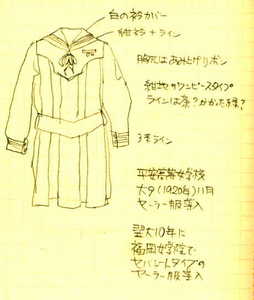 白の衿カバー
紺衿+ライン
胸元はあみあげリボン
紺地のワンピースタイプ
ラインは茶?かかった様?
3本ライン
平安高等女学校
大9(1920年)11月
セーラー服導入
翌大10年に
福岡女学院で
セパレートタイプの
セーラー服導入